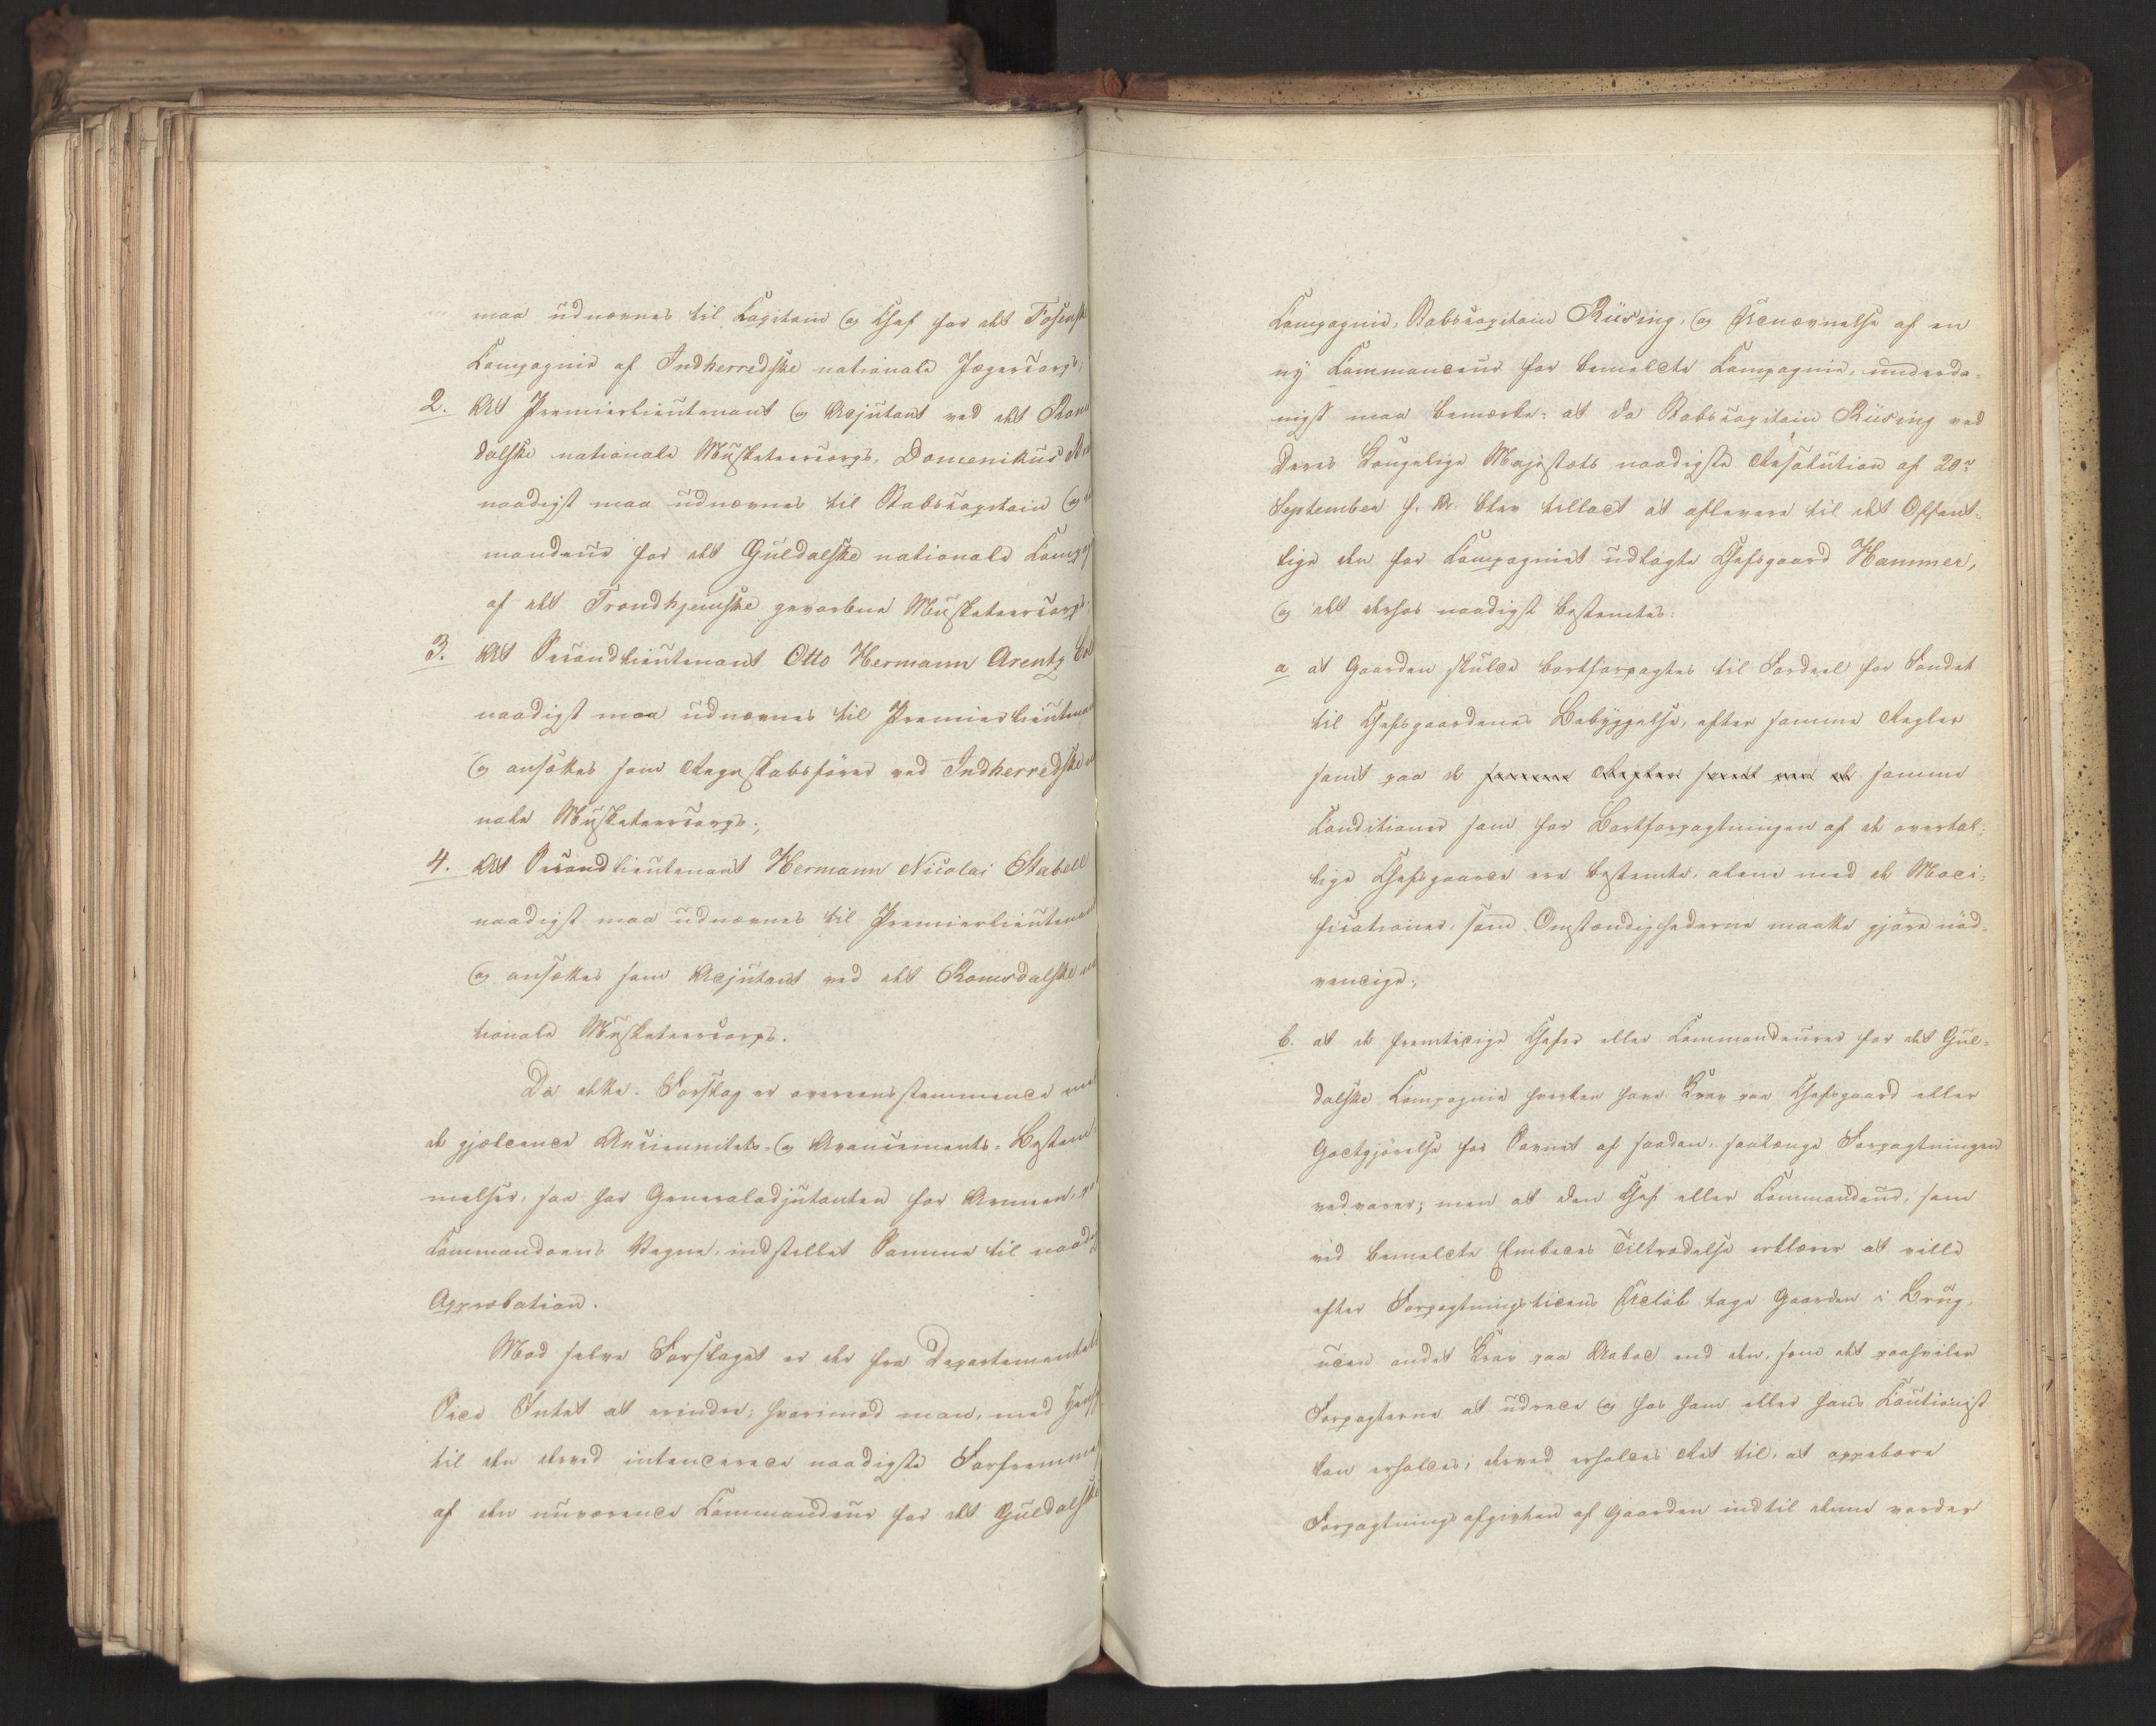 maa udnævnes til Kapitain og Chef for det Fosenske
Kompagnie af Indherredske nationale Jægercorps;
2. At Premierlieutenant og Adjutant ved det Roms
dalske nationale Musketeercorps, Domenikus
naadigst maa udnævnes til Stabscapitain og
mandeur for det Guldalske nationale Kompag
af det Trondhjemske gevorbne Musketeercorps;
3. At Secondlieutenant Otto Hermann Arentz
naadigst maa udnævnes til Premierlieutenant
og ansættes som Regnskabsfører ved Indherredske
nale Musketeercorps;
4. At Secondlieutenant Hermann Nicolai Stabell
naadigst maa udnævnes til Premierlieutenant
og ansættes som Adjutant ved det Romsdalske na
tionale Musketeercorps.
Da dette Forslag er overeensstemmende med
de gjældende Anciennitets- og Avancements-Bestem-
melser, saa har Generaladjutanten for Armeen, paa
Kommandoens Vegne, indstillet Samme til naadigst
Approbation.
Mod selve Forslaget er der fra Departementets
Side Intet at erindre; hvorimod man, med Hensyn
til den derved intenderede naadigste Forfremmelse
af den nuværende Kommandeur for det Guldalske
Kompagnie, Stabscapitain Rüsing, og Udnævnelse af en
ny Kommandeur for bemeldte Kompagnie, underda-
nigst maa bemærke: at da Stabscapitain Rüsing ved
Deres Kongelige Majestæts naadigste Resolution af 20de
September f. A. blev tilladt at aflevere til det Offent-
lige den for Kompagniet udlagte Chefsgaard Hammer,
og det derhos naadigst bestemtes:
a. at Gaarden skulde bortforpagtes til Fordeel for Fondet
til Chefsgaardenes Bebyggelse, efter samme Regler
samt paa de samme Regler samt paa de samme
Conditioner som for Bortforpagtningen af de overtal-
lige Chefsgaarde ere bestemte, alene med de Modi-
ficationer, som Omstændighederne maatte gjøre nød-
vendige;
b. at de fremtidige Chefer eller Kommandeurer for det Gul-
dalske Kompagnie hverken have Krav paa Chefsgaard eller
Godtgjørelse for Savnet af saadan, saalænge Forpagtningen
vedvarer; men at den Chef eller Kommandeur, som
ved bemeldte Embedes Tiltrædelse erklærer at ville
efter Forpagtningstidens Udløb tage Gaarden i Brug,
uden andet Krav paa Aabod end den, som det paahviler
Forpagterne at udrede og hos ham eller hans Kautionist
kan erholdes; derved erholdes Ret til, at oppebære
Forpagtningsafgivten af Gaarden indtil denne vorder